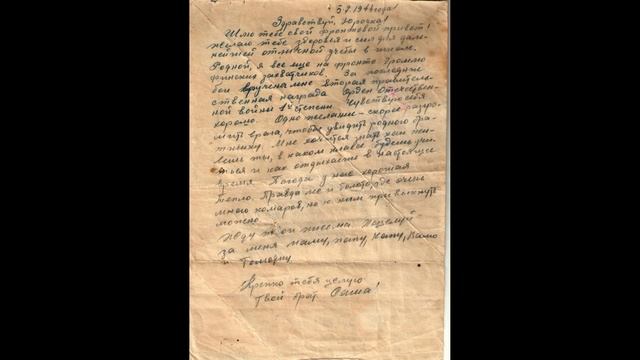 5.7.1944 года!
Здравствуй, Юрочка!
Шлю тебе свой фронтовой привет!
желаю тебе здоровья и сил для даль
нейшей отличной учебы в школе.
Родной, я все еще на фронте громлю
финских захватчиков. За последние
бои вручена мне вторая правитель
ственная награда Орден Отечествен
ной войны 1й степени. Чувствую себя
хорошо. Одно желание - скорее разгро
мить врага, чтобы увидить родного бра
тишку. Мне хочется знать как жи
вешь ты, в каком классе будешь учи
ться и как отдыхаете в настоящее
время. Погода у нас хорошая
тепло. Правда же и болото, где очень
много комаров, но к ним привыкнуть
можно.
Жду твои письма. Поцелуй
за меня маму, папу, Катю,
и
Крепко тебя целую
Твой брат Саша!